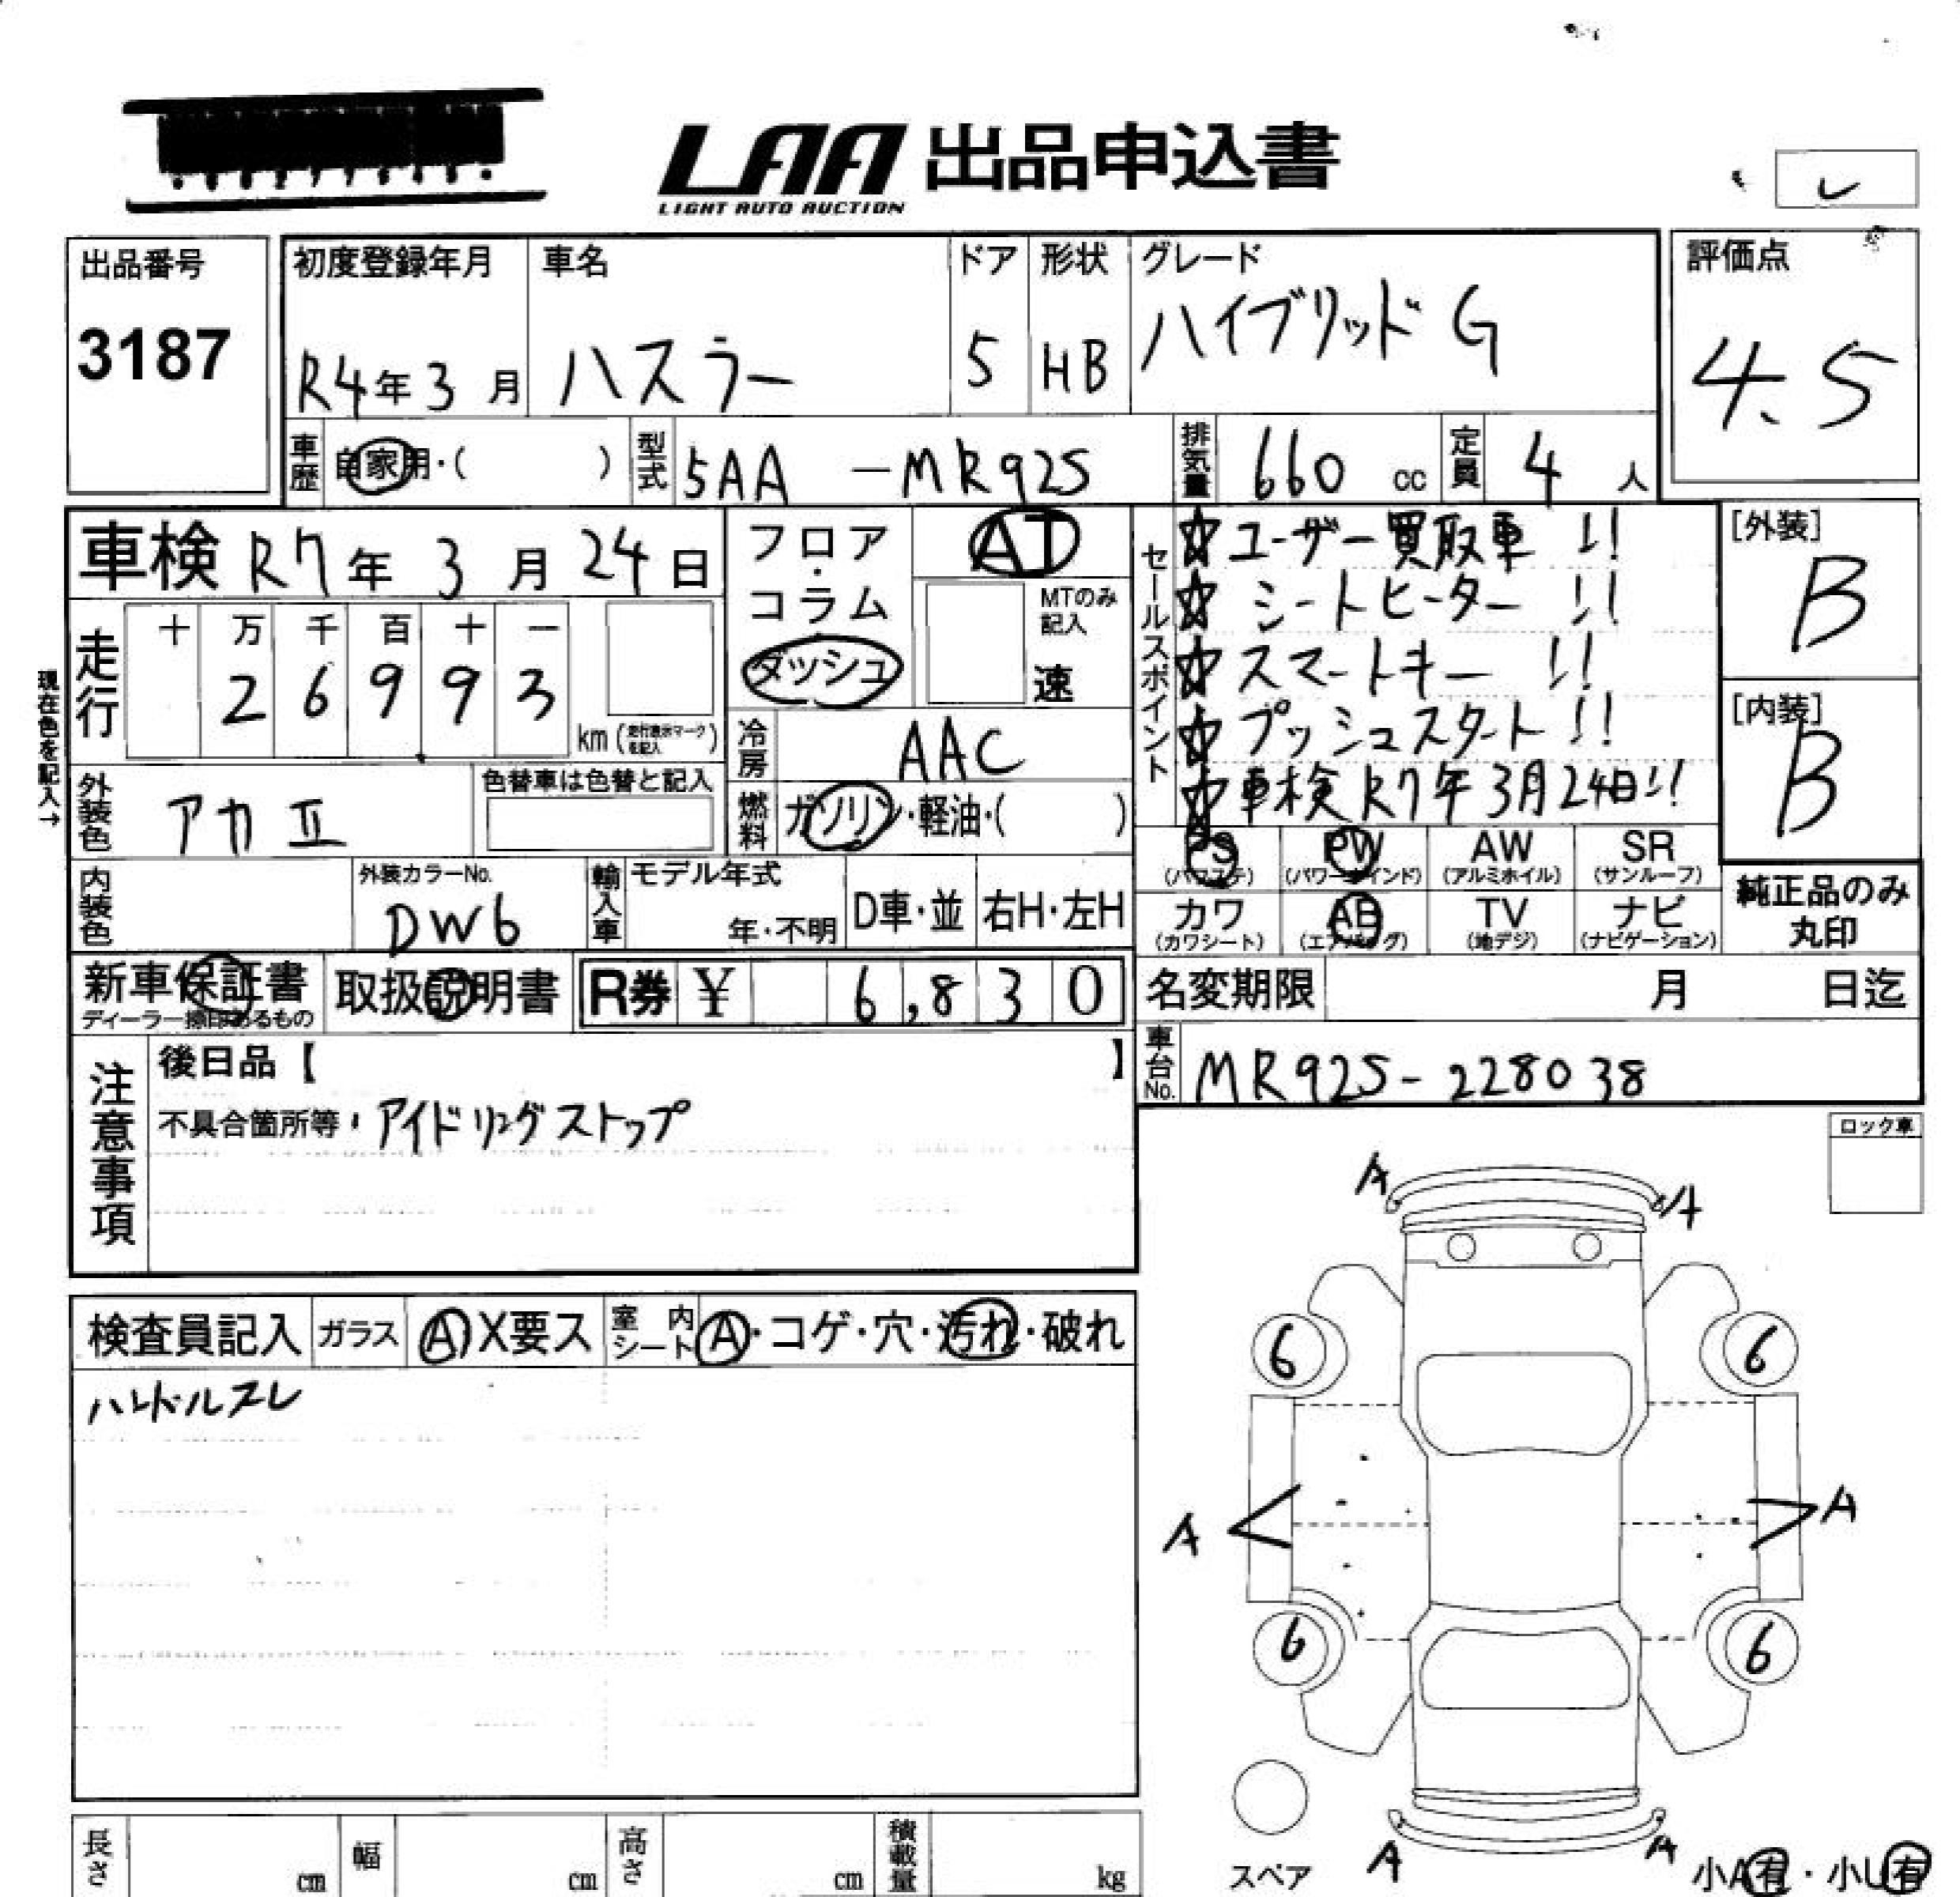 LAA 出品申込書
LIGHT AUTO AUCTION
レ
出品番号
3187
初度登録年月
R4年3月
車名
ハスラー
ドア
5
形状
HB
グレード
ハイブリッド G
評価点
4.5
車歴 自家用・( )
型式 5AA -MR92S
排気量 660 cc
定員 4 人
車検 R7年3月24日
フロア・コラム
ダッシュ
AT
MTのみ記入
速
セールスポイント
☆ユーザー買取車 !!
☆シートヒーター !!
☆スマートキー !!
☆プッシュスタート !!
☆車検R7年3月24日!!
[外装]
B
[内装]
B
現在色を記入→
走行
十 万 千 百 十 一
2 6 9 9 3
km (走行表示マークを記入)
冷房 AAC
外装色 アカⅡ
色替車は色替と記入
燃料 ガソリン・軽油・( )
PS (パワステ)
PW (パワーウインド)
AW (アルミホイル)
SR (サンルーフ)
カワ (カワシート)
AB (エアバッグ)
TV (地デジ)
ナビ (ナビゲーション)
純正品のみ丸印
内装色
外装カラーNo.
DW6
輸入車 モデル年式
年・不明
D車・並
右H・左H
新車保証書
ディーラー捺印あるもの
取扱説明書
R券 ¥ 6,830
名変期限 月 日迄
車台No. MR92S-228038
注意事項
後日品【 】
不具合箇所等・アイドリングストップ
ロック車
検査員記入 ガラス A X要ス 室内シート A・コゲ・穴・汚れ・破れ
ハンドルスレ
A A
6 6
A A
6 6
A A
スペア
小A有・小U有
長さ cm
幅 cm
高さ cm
積載量 kg